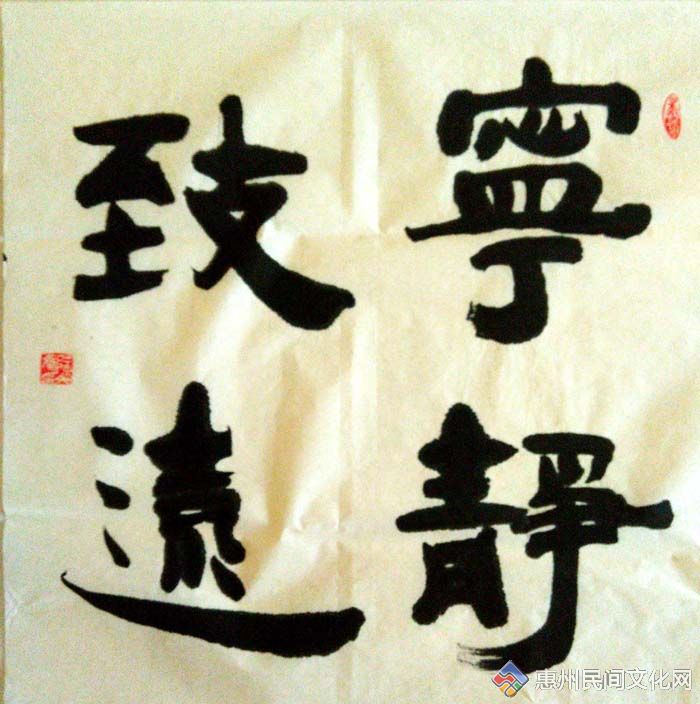 寧靜
致遠
惠州民间文化网